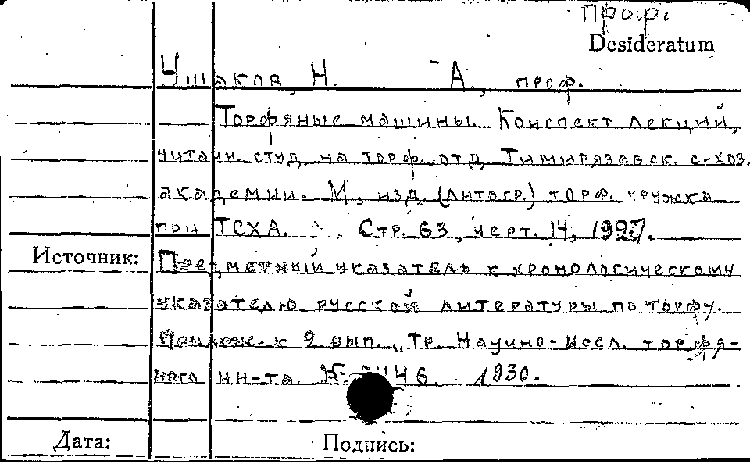 прор.
Desideratum
Ушаков, Н. А., проф.
Торфяные машины. Конспект лекций,
читанн. студ. на торф. отд. Тимирязевск. с-хоз.
академии. М., изд. (литогр.) торф. кружка
при ТСХА. Стр. 63, черт. 14, 1927.
Источник: Предметный указатель к хронологическому
указателю русской литературы по торфу.
к 9 вып. „Тр. Научно-иссл. торфя-
ного ин-та. 1930.
Дата: Подпись: